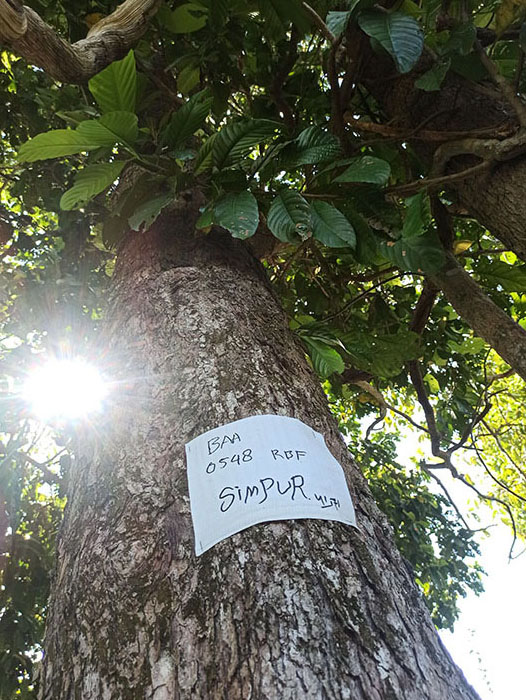 BAA
0548 RBF
SIMPUR.